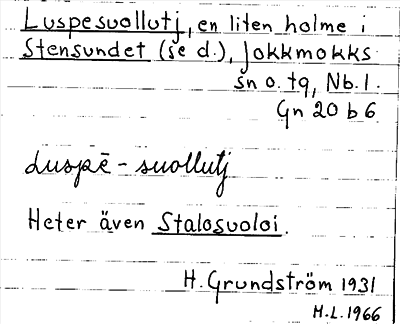 Luspesuollutj, en liten holme i
Stensundet (se d.), Jokkmokks
sn o. tg, Nb.l.
Gn 20 b 6
Luspē - suollutj
Heter även Stalosuoloi.
H. Grundström 1931
H.L. 1966